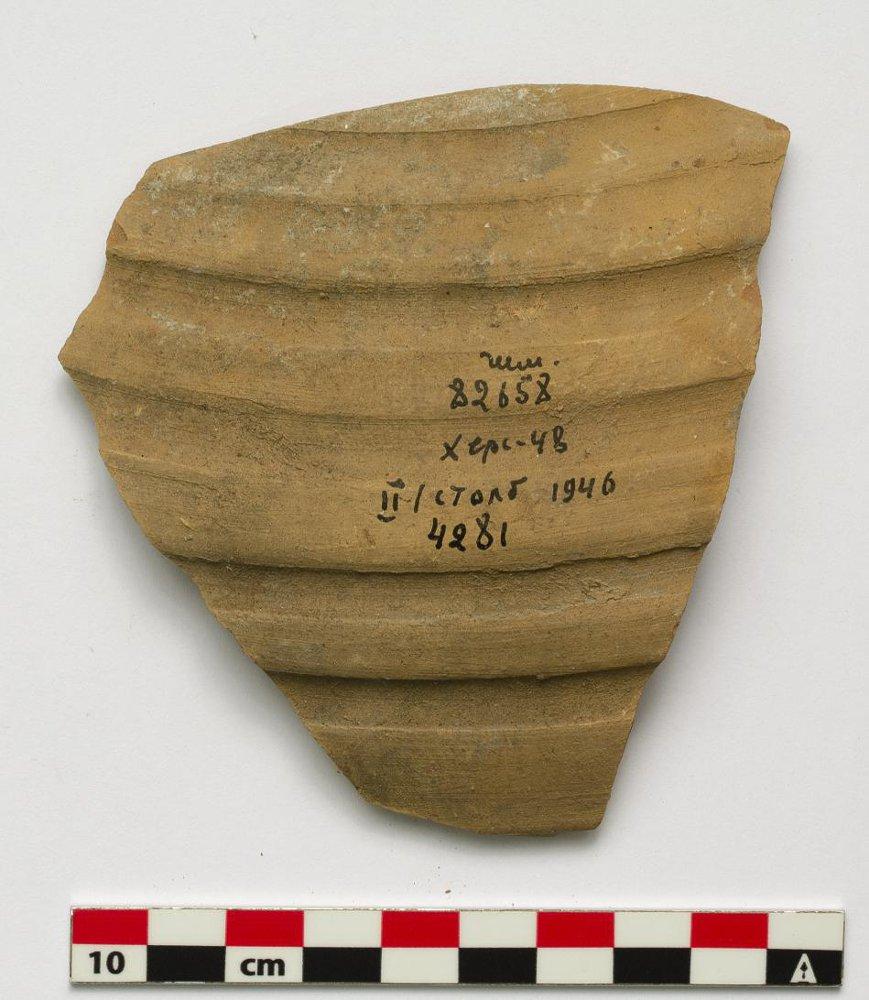 82658
Херс-48
II / столб 1946
4281
10 cm